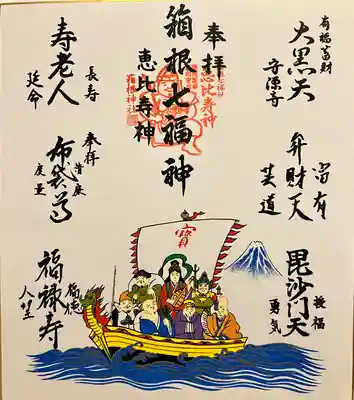 有福蓄財
大黒天
守源寺
弁財天
富有
芸道
毘沙門天
授福
勇気
奉拝
箱根七福神
恵比寿神
恵比寿神
箱根神社
寿老人
長寿
延命
奉拝
布袋尊
度量
福禄寿
人望
寳